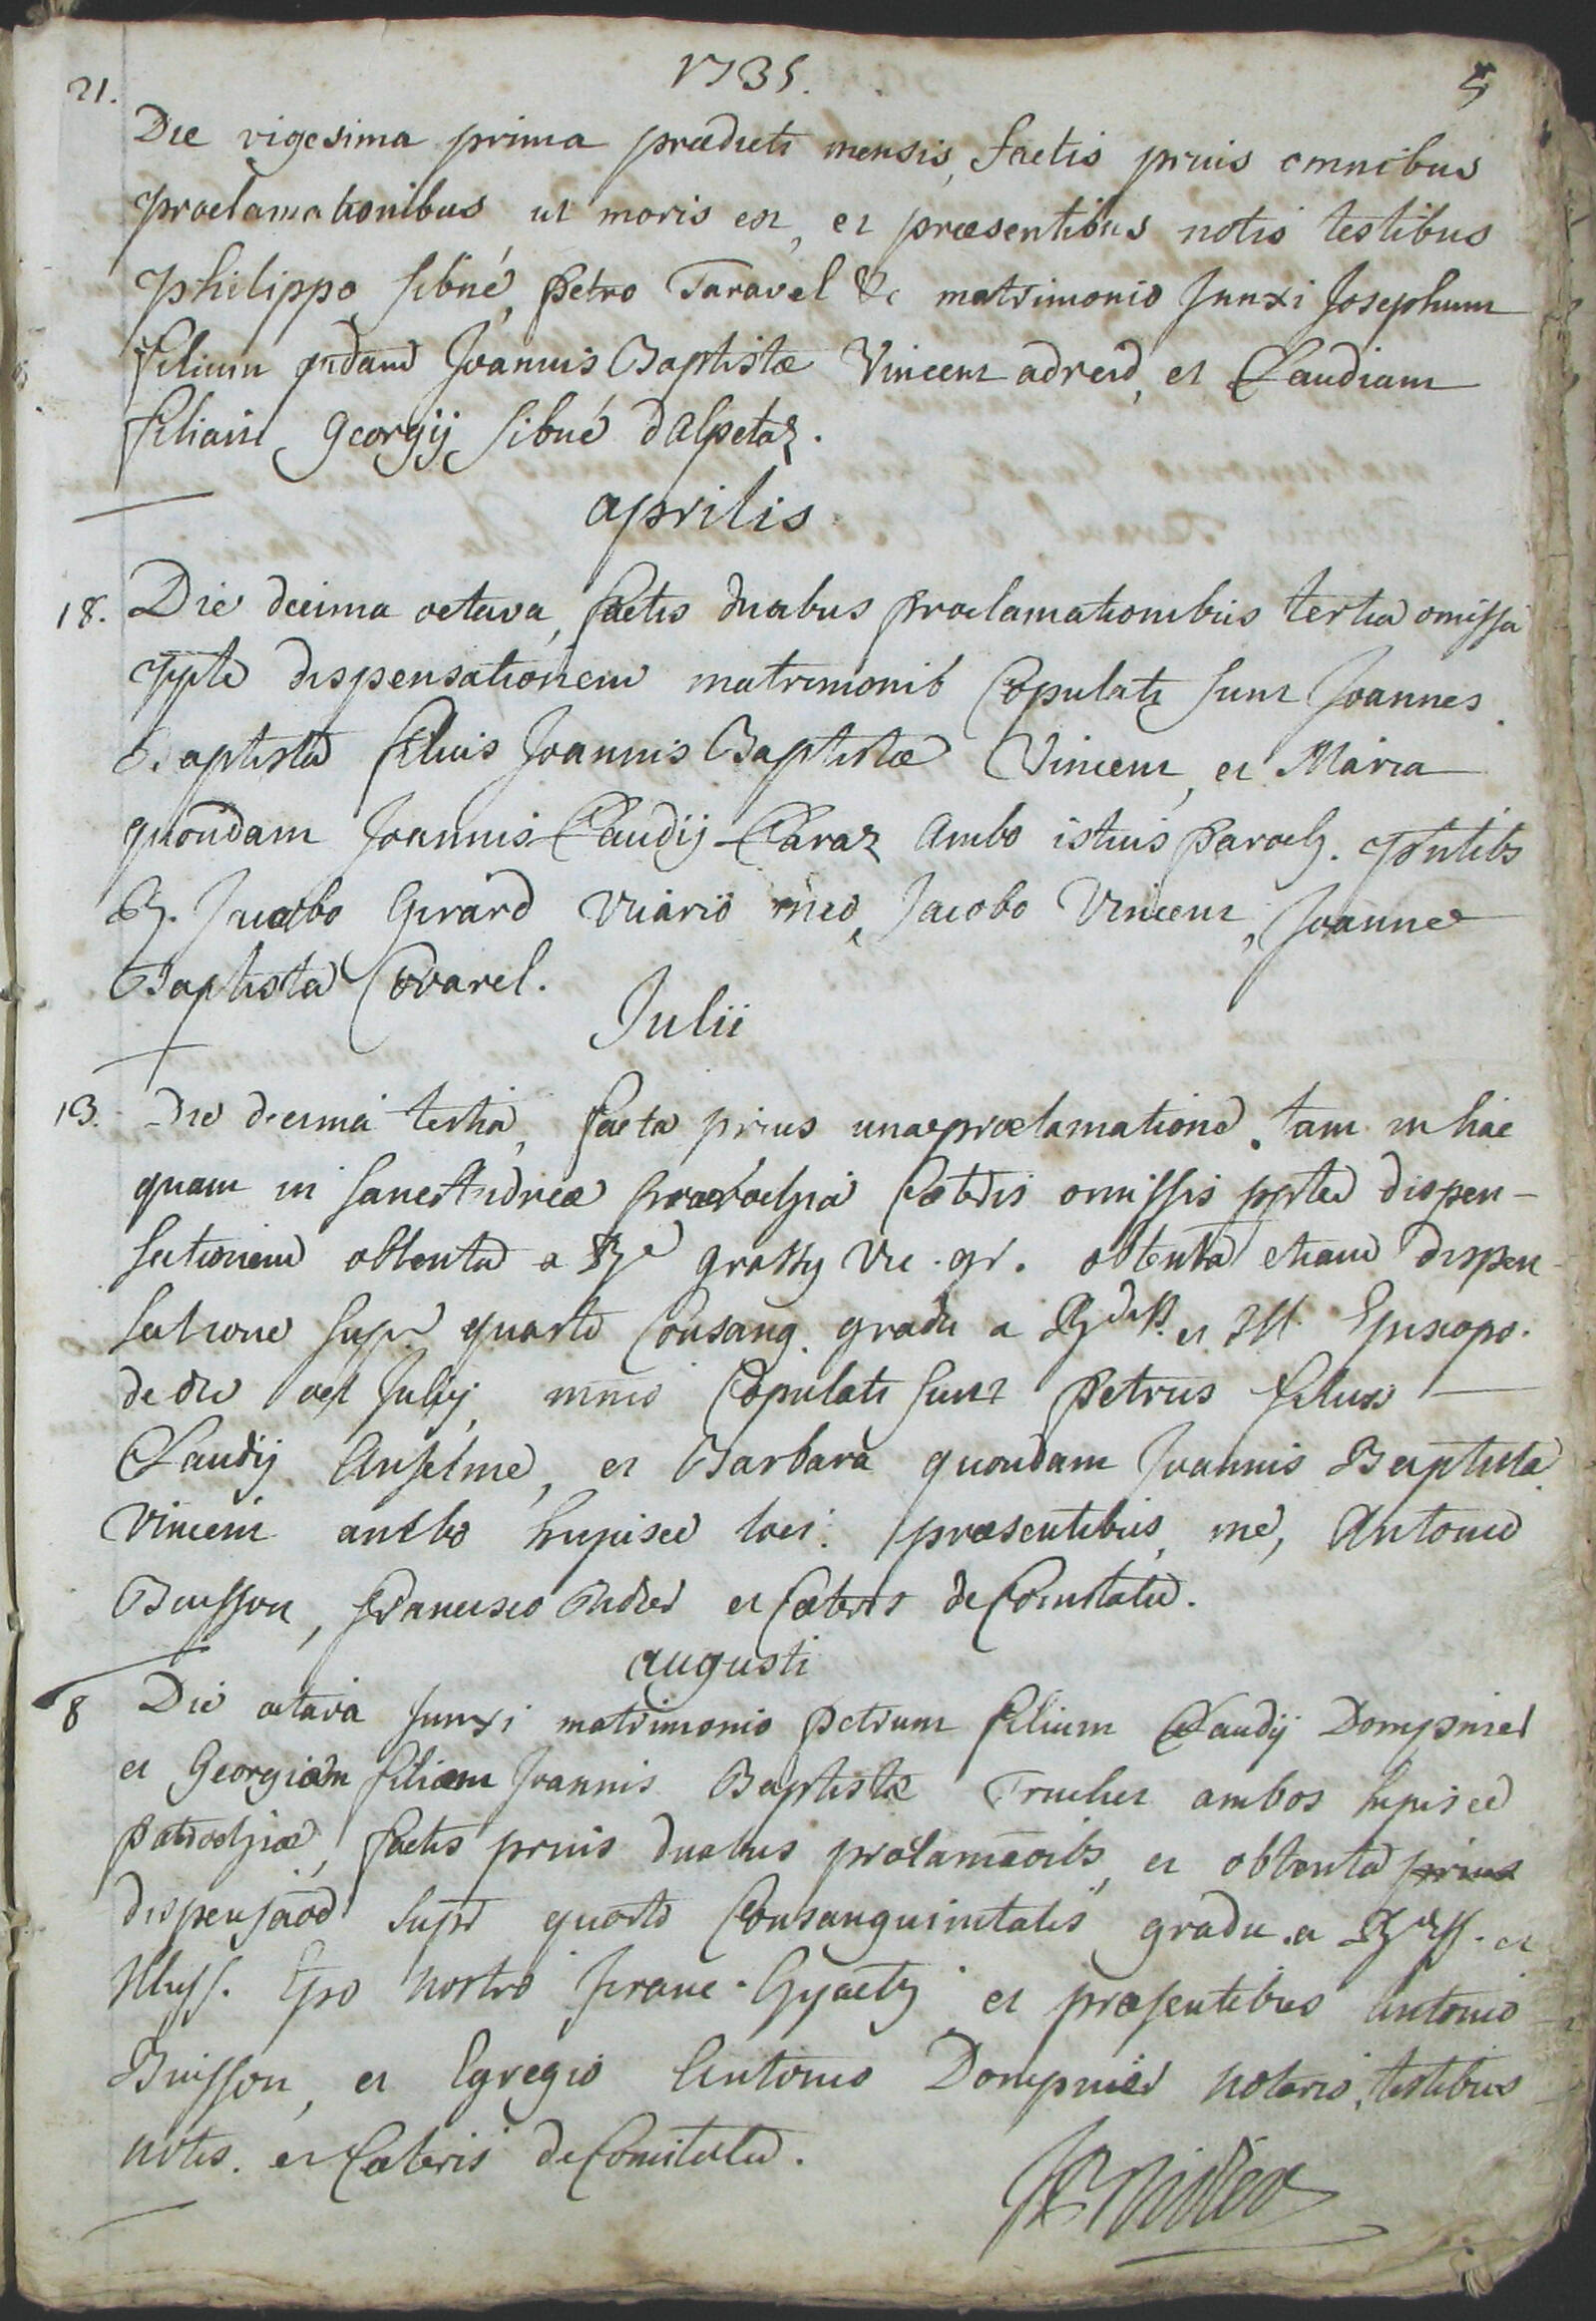 1735. 5
21.
Die vigesima prima prædicti mensis, factis prius omnibus
proclamationibus ut moris est, et præsentibus notis testibus
philippo sibué, petro Taravel &c matrimonio Junxi Josephum
filium qdam Joannis Baptistæ Vincent et Claudiam
filiam georgij sibué d'alpetaz.
aprilis
18. Die decima octava, factis duabus proclamationibus tertia omissa
ppte dispensationem matrimonio Copulati sunt Joannes
Baptista filius Joannis Baptistæ Vincent, et Maria
quondam Joannis Claudij Claraz ambo istius paroch. pntibs
R. Jacobo girard vicario meo, Jacobo Vincent, Joanne
Baptista Covarel.
Julii
13. Die decima tertia, facta prius una proclamatione tam in hac
quam in sanct Andreæ parochia Cæteris omissis ppter dispen-
sationem obtenta a Rdo grassy vic. gr. obtenta etiam dispen-
satione super quarto Consang. gradu a Rdiss. et Ill. Episcopo.
de die oct Julij, mnio Copulati sunt petrus filius
Claudij Anselme, et Barbara quondam Joannis Baptista
Vincent ambo hujusce loci. præsentibus me, Antonio
Buisson, francisco et Cæteris de Comitatu.
augusti
8 Die octava junxi matrimonio petrum filium Claudij Dompnier
et georgiam filiam Joannis Baptistæ Truchet ambos hujusce
parochiæ, factis prius duabus proclamaõibs, et obtenta prius
dispensaõe super quarto Consanguinitatis gradu a Rdiss. et
Illuss. Epo nostro et præsentibus antonio
Buisson, et Egregio Antonio Dompnier notario, testibus
notis. et Cæteris de Comitatu.